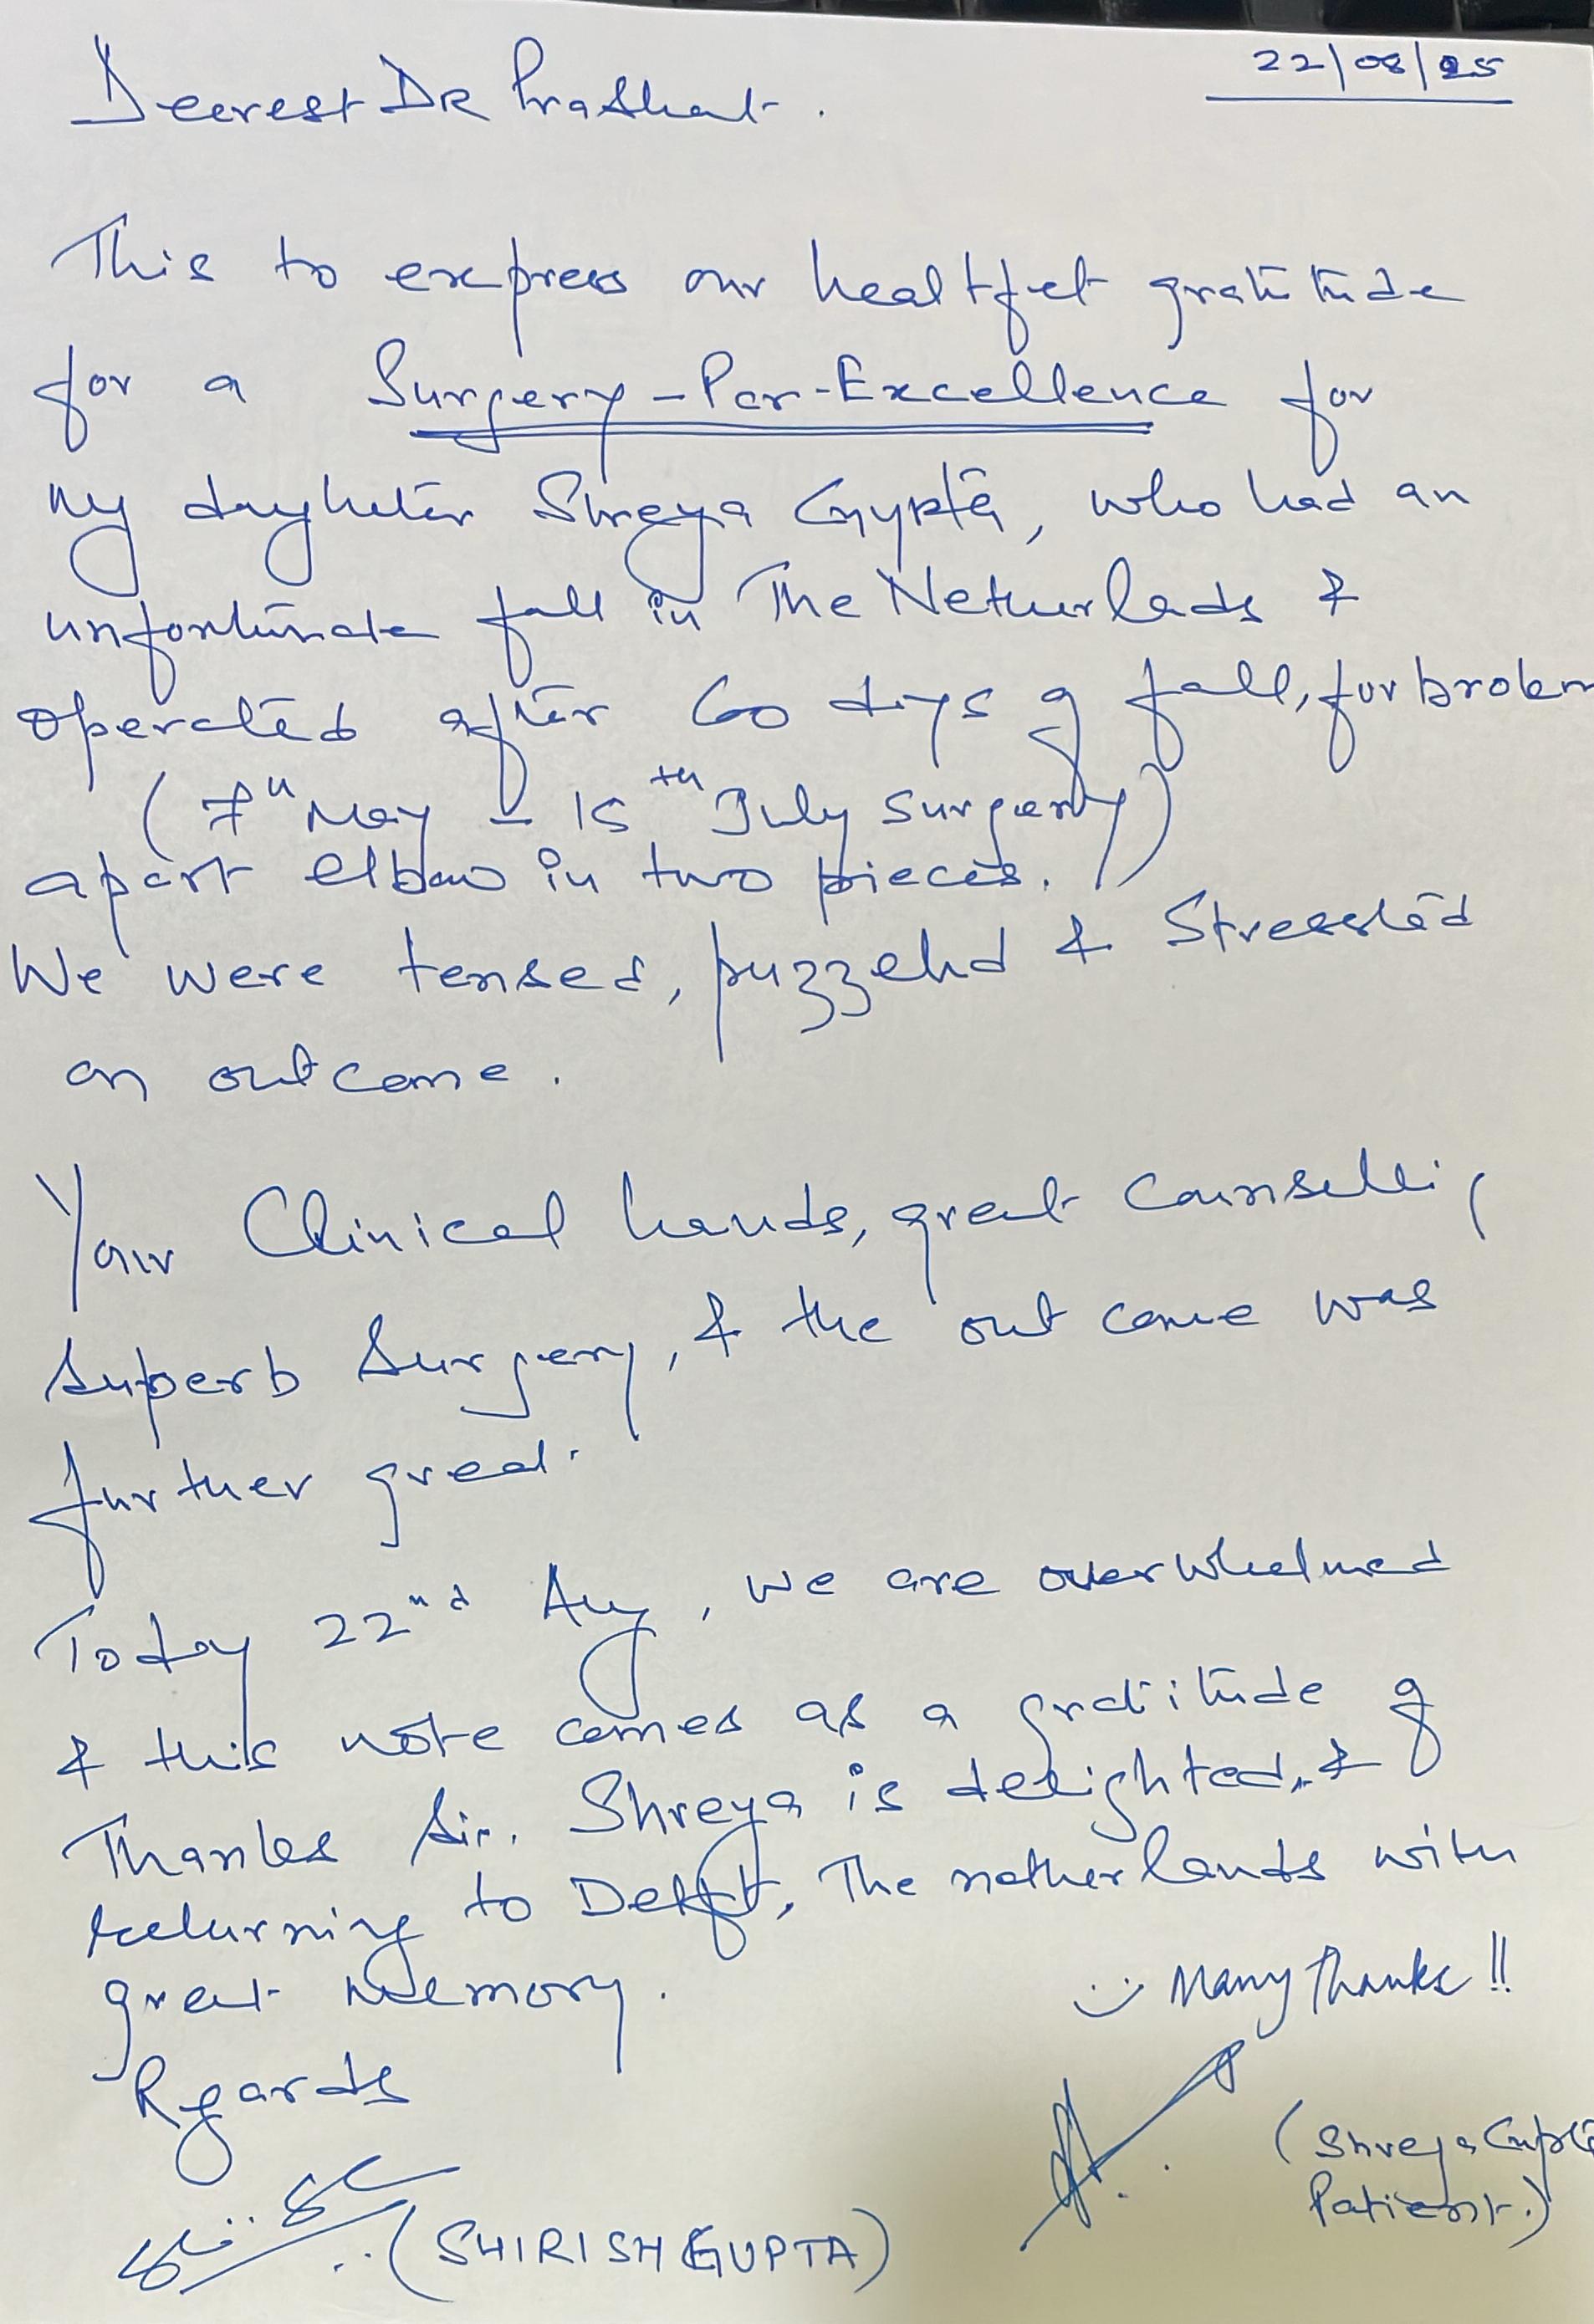 22/08/25
Dearest DR Prashant.
This to express our healtfelt gratitude
for a Surgery-Par-Excellence for
my daughter Shreya Gupta, who had an
unfortunate fall in The Netherlads &
operated after 60 days of fall, for broken
(7th May - 15th July surgery)
apart elbow in two pieces.
We were tensed, puzzeld & Stressted
on outcome.
Your Clinical hands, great Counselling
superb Surgery, & the out come was
further great.
Today 22nd Aug, we are overwhelmed
& this note comes as a gratitude of
Thanks Sir. Shreya is delighted, &
returning to Delft, The netherlands with
great memory.
:) Many thanks!!
Regards
(Shreya Gupta
Patient.)
(SHIRISH GUPTA)